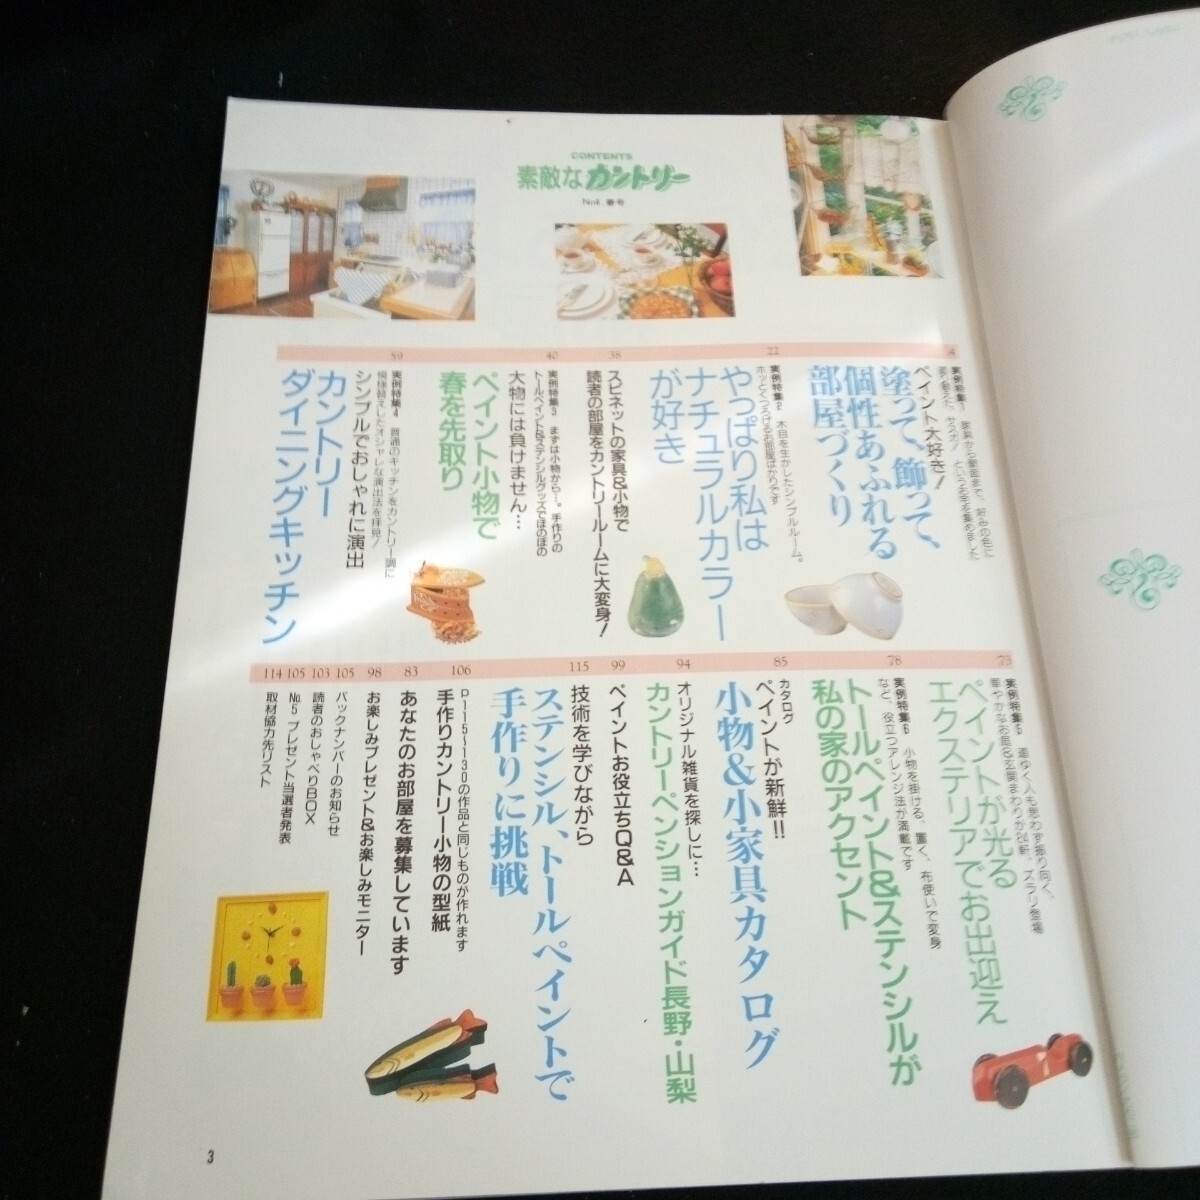 CONTENTS
素敵なカントリー
No.6.春号
4
実例特集1
家具から壁面まで、好みの色に
ペイント大好き！
塗って、飾って、
個性あふれる
部屋づくり
22
実例特集2 木目を生かしたシンプルルーム。
ホッとくつろげるお部屋ばかりです
やっぱり私は
ナチュラルカラー
が好き
38
スピネットの家具&小物で
読者の部屋をカントリールームに大変身！
40
実例特集3 まずは小物から…。手作りの
トールペイント&ステンシルグッズでほのぼの
大物には負けません…
ペイント小物で
春を先取り
59
実例特集4 普通のキッチンをカントリー調に
模様替えしたオシャレな演出法を拝見！
シンプルでおしゃれに演出
カントリー
ダイニングキッチン
73
実例特集5 道ゆく人も思わず振り向く、
華やかなお庭&玄関まわりが24軒、ズラリ登場
ペイントが光る
エクステリアでお出迎え
78
実例特集6 小物を掛ける、置く、布使いで変身
など、役立つアレンジ法が満載です
トールペイント&ステンシルが
私の家のアクセント
85
カタログ
ペイントが新鮮!!
小物&小家具カタログ
94
オリジナル雑貨を探しに…
カントリーペンションガイド長野・山梨
99
ペイントお役立ちQ&A
115
技術を学びながら
ステンシル、トールペイントで
手作りに挑戦
106
P115〜130の作品と同じものが作れます
手作りカントリー小物の型紙
83
あなたのお部屋を募集しています
98
お楽しみプレゼント&お楽しみモニター
105
バックナンバーのお知らせ
103
読者のおしゃべりBOX
105
No.5 プレゼント当選者発表
114
取材協力先リスト
3